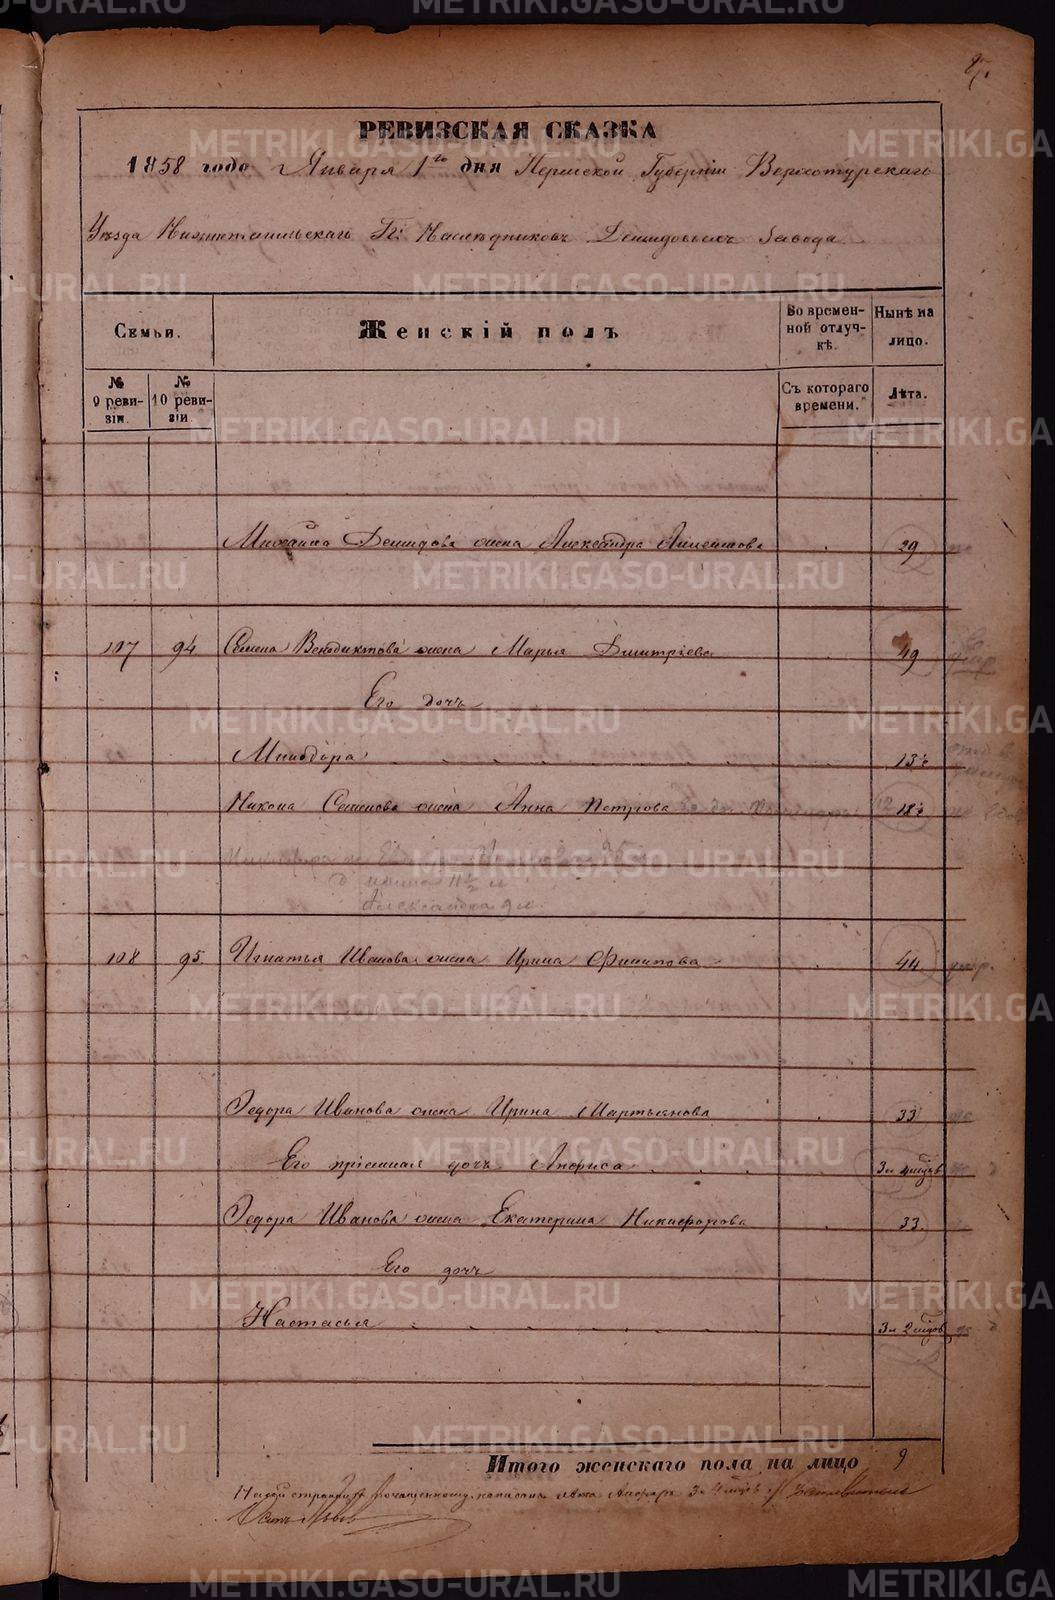 87.
РЕВИЗСКАЯ СКАЗКА
1858 года Января 1го дня Пермской Губерніи Верхотурскаго
Уѣзда Нижнетагильскаго Гг: Наслѣдниковъ Демидовыхъ Завода
Семьи. Женскій полъ Во времен-ной отлуч-кѣ. Нынѣ на лицо.
№ 9 реви-зіи. № 10 реви-зіи. Съ котораго времени. Лѣта.
Михаила Демидова жена Александра 29
107 94 Семена Венедиктова жена Марья Дмитріева 49
Его дочь
Минодора 13½
Никона Семенова жена Анна Петрова 18½
Александра 9 м.
108 95. Игнатья Иванова жена Ирина Филипова 44 умр.
Федора Иванова жена Ирина Мартьянова 33
Его пріемная дочь Анфиса 3 и 4 мѣсц
Федора Иванова жена Екатерина Никифорова 33.
Его дочь
Настасья 3 и 2 мѣсцов
Итого женскаго пола на лицо 9
На сей страницѣ по чищенному написано лѣта Анфисѣ 3 и 4 мѣсц
METRIKI.GASO-URAL.RU